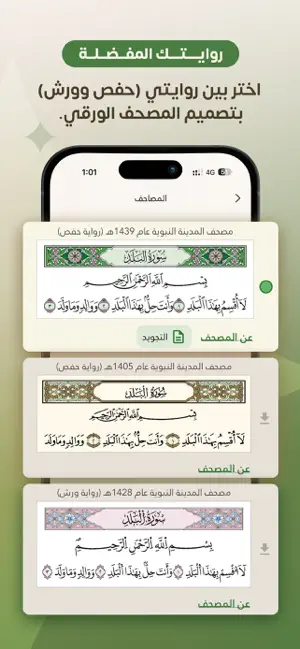 روايـــتـــك المفـضـلـة
اختر بين روايتي (حفص وورش)
بتصميم المصحف الورقي.
1:01
4G
المصاحف
مصحف المدينة النبوية عام 1439هـ (رواية حفص)
سُورَةُ الْبَلَدِ
بِسْمِ اللَّهِ الرَّحْمَٰنِ الرَّحِيمِ
لَآ أُقْسِمُ بِهَٰذَا الْبَلَدِ ١ وَأَنتَ حِلٌّ بِهَٰذَا الْبَلَدِ ٢ وَوَالِدٍ وَمَا وَلَدَ ٣
عن المصحف
التجويد
مصحف المدينة النبوية عام 1405هـ (رواية حفص)
سُورَةُ الْبَلَدِ
بِسْمِ اللَّهِ الرَّحْمَٰنِ الرَّحِيمِ
لَآ أُقْسِمُ بِهَٰذَا الْبَلَدِ ١ وَأَنتَ حِلٌّ بِهَٰذَا الْبَلَدِ ٢ وَوَالِدٍ وَمَا وَلَدَ
عن المصحف
مصحف المدينة النبوية عام 1428هـ (رواية ورش)
سُورَةُ الْبَلَدِ
بِسْمِ اللَّهِ الرَّحْمَٰنِ الرَّحِيمِ
لَآ أُقْسِمُ بِهَٰذَا الْبَلَدِ ١ وَأَنتَ حِلٌّ بِهَٰذَا الْبَلَدِ ٢ وَوَالِدٍ وَمَا وَلَدَ ٣
عن المصحف